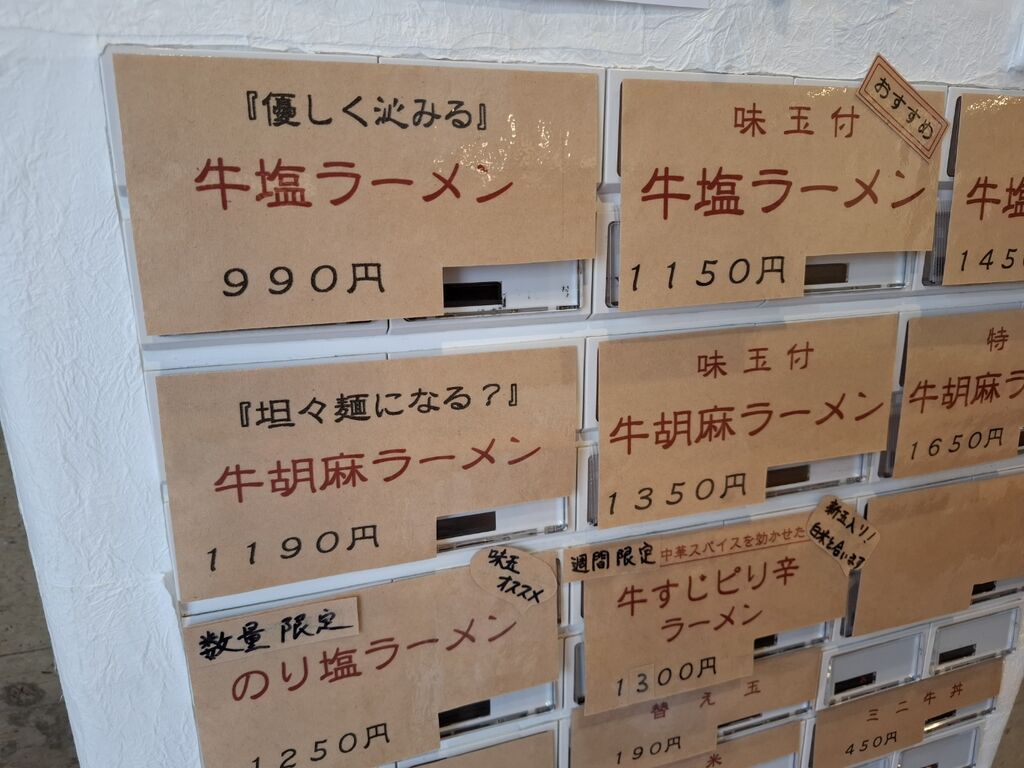 『優しく沁みる』
牛塩ラーメン
990円
おすすめ
味玉付
牛塩ラーメン
1150円
牛塩
145
『坦々麺になる？』
牛胡麻ラーメン
1190円
味玉付
牛胡麻ラーメン
1350円
特
牛胡麻ラ
1650円
味玉
オススメ
数量限定
のり塩ラーメン
1250円
週間限定
中華スパイスを効かせた
新玉入り!
白米と合います
牛すじピリ辛
ラーメン
1300円
替え玉
190円
ミニ牛丼
450円
米